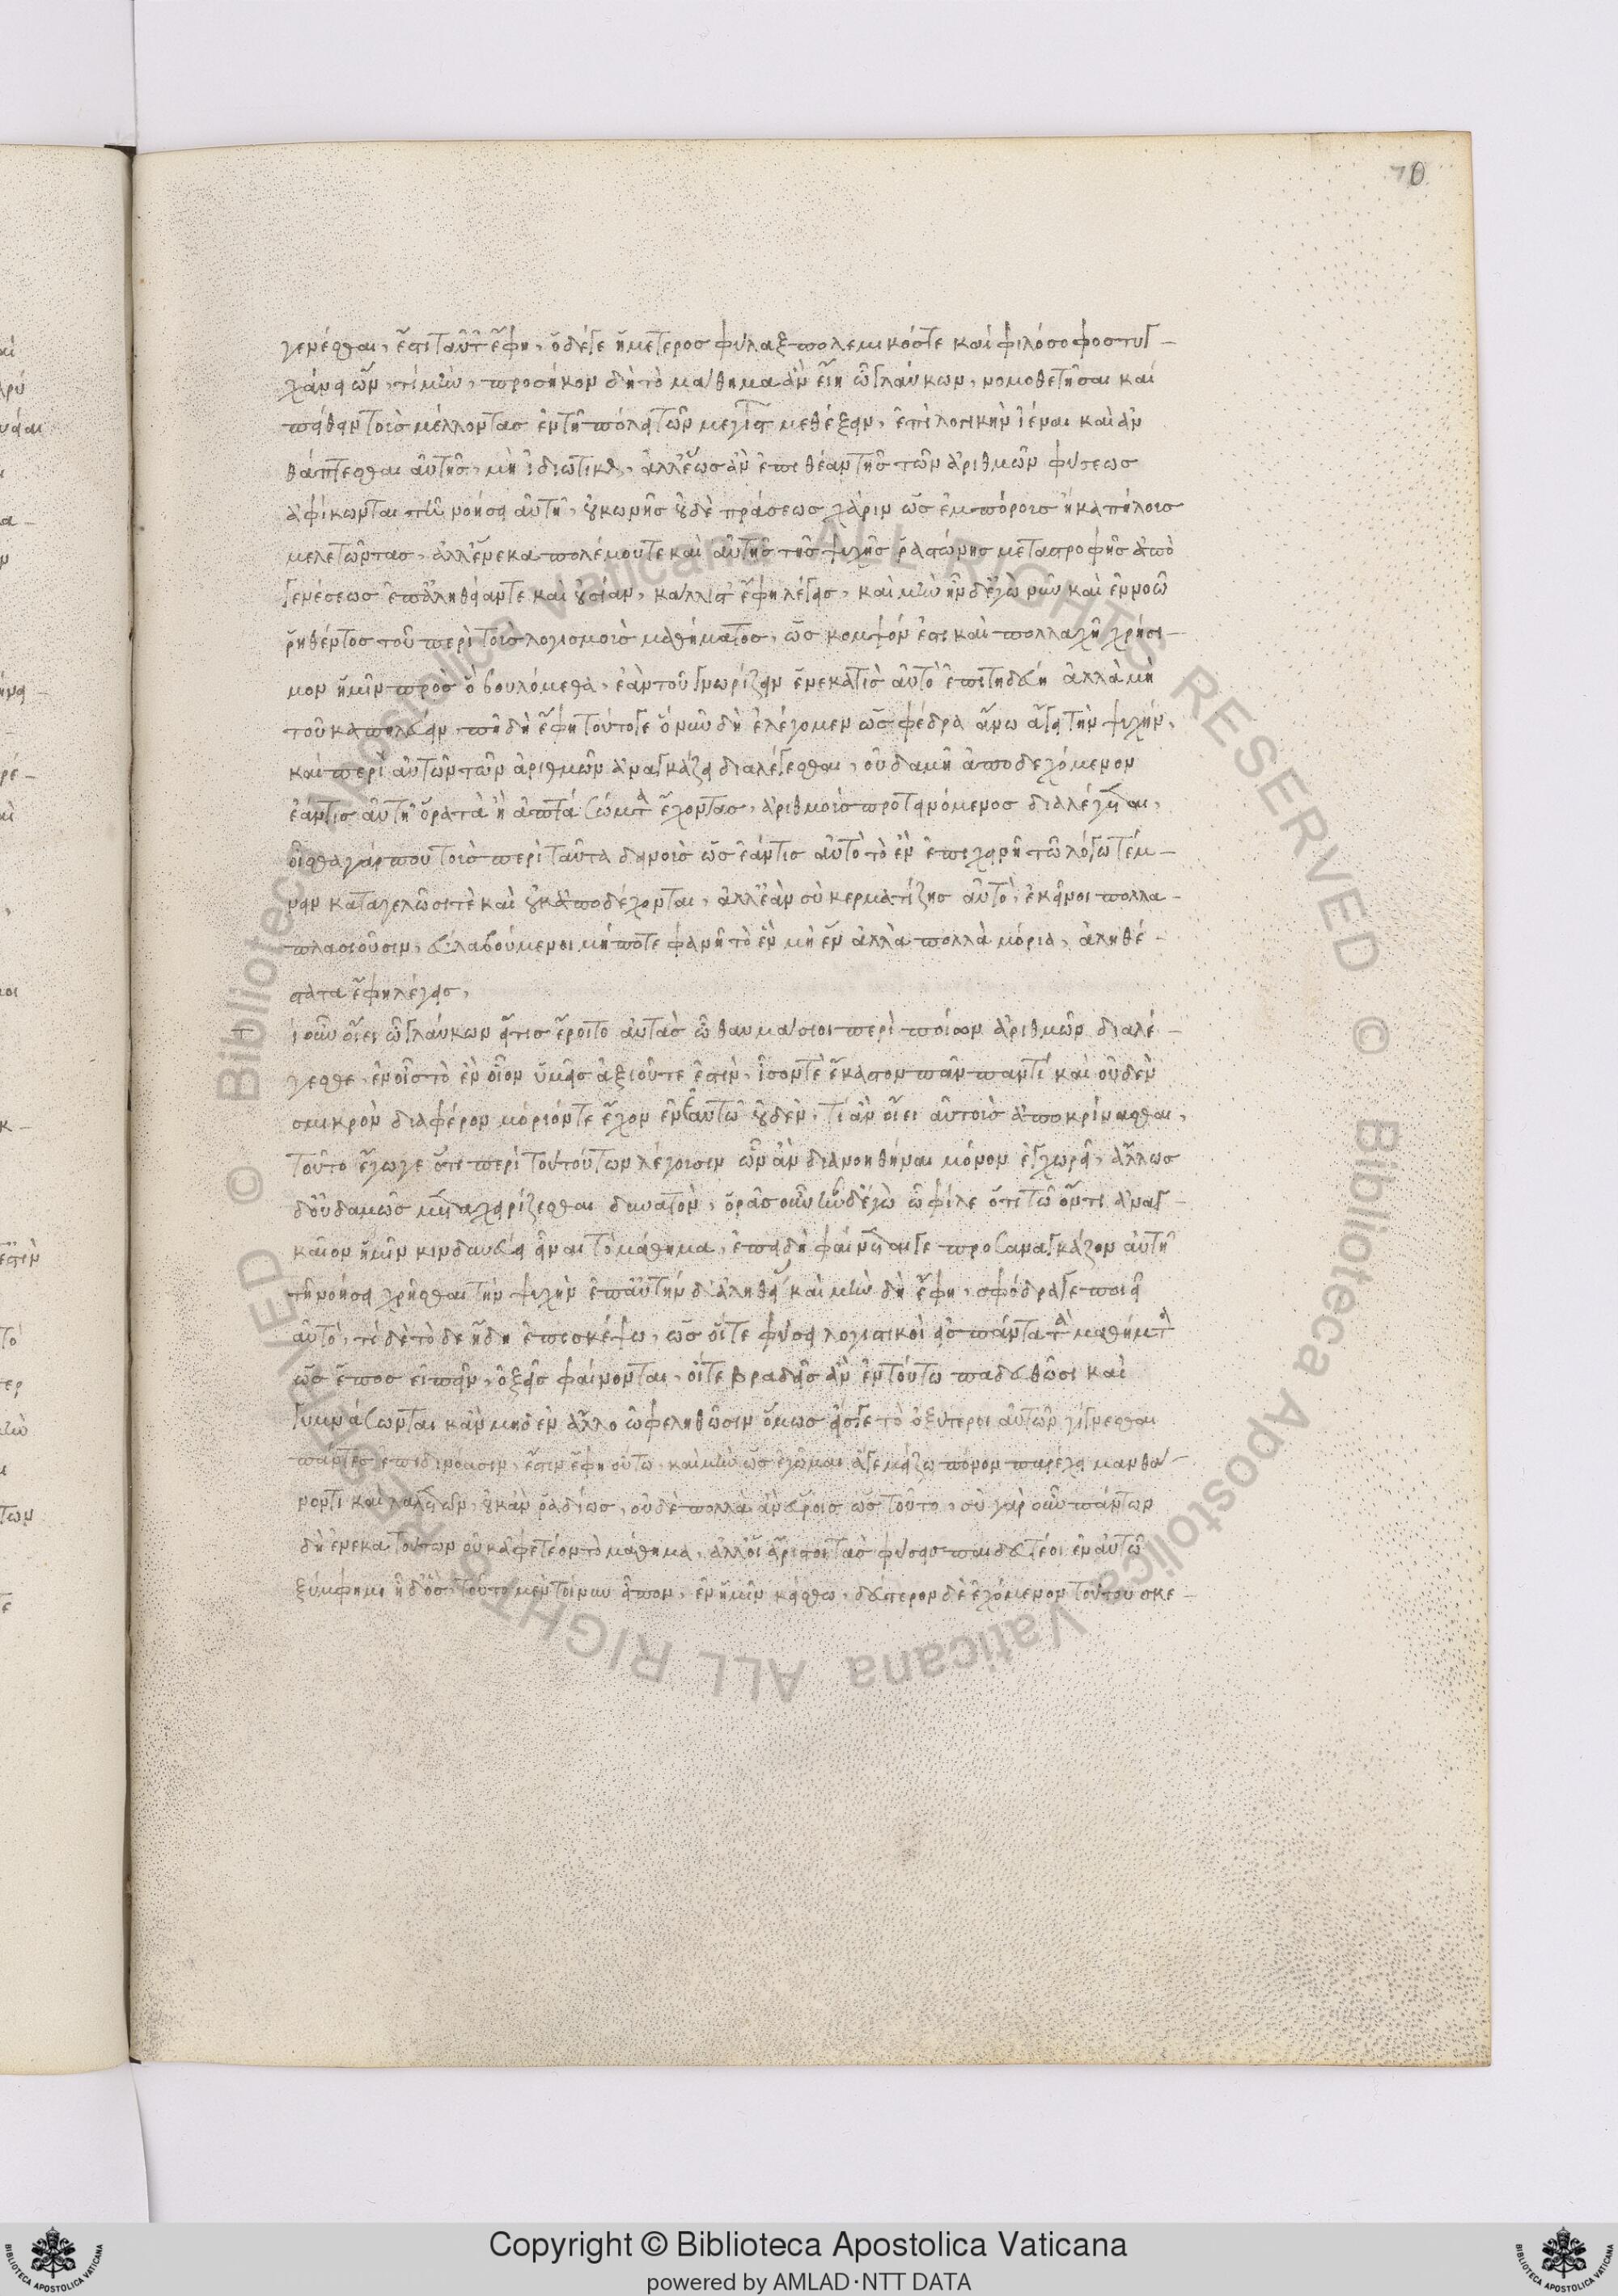 70
γενέσθαι, ἔστι ταῦτ ἔφη, ὁ δέ γε ἡμέτερος φύλαξ πολεμικός τε καὶ φιλόσοφος τυγ-
χάνει ὤν, τί μήν, προσήκον δὴ τὸ μάθημα ἂν εἴη ὦ γλαύκων, νομοθετῆσαι καὶ
πείθειν τοὺς μέλλοντας ἐν τῆ πόλει τῶν μεγίστ μεθέξειν, ἐπὶ λογικὴν ἰέναι καὶ ἀν
θάπτεσθαι αὐτῆς, μὴ ἰδιωτικ, ἀλλ ἕως ἂν ἐπι θέαν τῆς τῶν ἀριθμῶν φύσεως
ἀφίκωνται τῆ νοήσει αὐτῆ, οὐκ ὠνῆς οὐδὲ πράσεως χάριν ὡς ἐμπόροις ἢ καπήλοις
μελετῶντας, ἀλλ ἕνεκα πολέμου τε καὶ αὐτῆς τῆς ψυχῆς ῥαστώνης μεταστροφῆς ἀπὸ
γενέσεως ἐπ ἀλήθειάν τε καὶ οὐσίαν, κάλλιστ ἔφη λέγεις, καὶ μὴν ἦν δ ἐγὼ νῦν καὶ ἐννοῶ
ῥηθέντος τοῦ περὶ τοὺς λογισμοὺς μαθήματος, ὡς κομψόν ἐστι καὶ πολλαχῆ χρήσι-
μον ἡμῖν πρὸς ὃ βουλόμεθα, ἐὰν τοῦ γνωρίζειν ἕνεκά τις αὐτὸ ἐπιτηδεύη ἀλλὰ μὴ
τοῦ καπηλεύειν, πῆ δὴ ἔφη τοῦτό γε ὃ νῦν δὴ ἐλέγομεν ὡς φέδρα ἄνω ἄγει τὴν ψυχήν,
καὶ περὶ αὐτῶν τῶν ἀριθμῶν ἀναγκάζει διαλέγεσθαι, οὐδαμῆ ἀποδεχόμενον
ἐάν τις αὐτῆ ὁρατὰ ἢ ἁπτὰ σώματα ἔχοντας, ἀριθμοὺς προτεινόμενος διαλέγηται,
οἶσθα γάρ που τοὺς περὶ ταῦτα δεινοὺς ὡς ἐάν τις αὐτὸ τὸ ἓν ἐπιχειρῆ τῶ λόγω τέμ-
νειν καταγελῶσί τε καὶ οὐκ ἀποδέχονται, ἀλλ ἐὰν σὺ κερματίζης αὐτὸ, ἐκεῖνοι πολλα-
πλασιοῦσιν, εὐλαβούμενοι μή ποτε φανῆ τὸ ἓν μὴ ἓν ἀλλὰ πολλὰ μόρια, ἀληθέ-
στατα ἔφη λέγεις,
Τί οὖν οἴει ὦ γλαύκων εἴ τις ἔροιτο αὐτοὺς ὦ θαυμάσιοι περὶ ποίων ἀριθμῶν διαλέ-
γεσθε, ἐν οἷς τὸ ἓν οἷον ὑμεῖς ἀξιοῦτέ ἐστιν, ἴσον τὲ ἕκαστον πᾶν παντί καὶ οὐδὲν
σμικρὸν διαφέρον μόριόν τε ἔχον ἐν ἑαυτῶ οὐδὲν, τί ἂν οἴει αὐτοὺς ἀποκρίνασθαι,
τοῦτο ἔγωγε ὅτι περὶ τούτων λέγουσιν ὧν ἂν διανοηθῆναι μόνον ἐγχωρεῖ, ἄλλως
δ οὐδαμῶς μεταχειρίζεσθαι δυνατὸν, ὁρᾶς οὖν ἦν δ ἐγὼ ὦ φίλε ὅτι τῶ ὄντι ἀναγ-
καῖον ἡμῖν κινδυνεύει εἶναι τὸ μάθημα, ἐπειδὴ φαίνεταί γε προσαναγκάζον αὐτῆ
τῆ νοήσει χρῆσθαι τὴν ψυχὴν ἐπ αὐτὴν δ ἀλήθει καὶ μὴν δὴ ἔφη, σφόδρα γε ποιεῖ
αὐτὸ, τί δὲ τὸ δε ἤδη ἐπεσκέψω, ὡς οἵ τε φύσει λογιστικοὶ εἰς πάντα τὰ μαθήματα
ὡς ἔπος εἰπεῖν, ὀξεῖς φαίνονται, οἵ τε βραδεῖς ἂν ἐν τούτω παιδευθῶσι καὶ
γυμνάσωνται κἂν μηδὲν ἄλλο ὠφεληθῶσιν ὅμως εἴς γε τὸ ὀξύτεροι αὐτῶν γίγνεσθαι
πάντες ἐπιδιδόασιν, ἔστιν ἔφη οὕτω, καὶ μὴν ὡς ἐγῶμαι ἅ γε μείζω πόνον παρέχει μανθά-
νοντι καὶ μελετῶν, οὐκ ἂν ῥαδίως, οὐδὲ πολλὰ ἂν εὕροις ὡς τοῦτο, οὐ γὰρ οὖν πάντων
δὴ ἕνεκα τούτων οὐκ ἀφετέον τὸ μάθημα, ἀλλ οἱ ἄριστοι τὰς φύσεις παιδευτέοι ἐν αὐτῶ
ξύμφημι ἦ δ ὅς, τοῦτο μὲν τοίνυν εἶπον, ἓν ἡμῖν κείσθω, δεύτερον δὲ ἐχόμενον τούτου σκε-
Copyright © Biblioteca Apostolica Vaticana
powered by AMLAD·NTT DATA